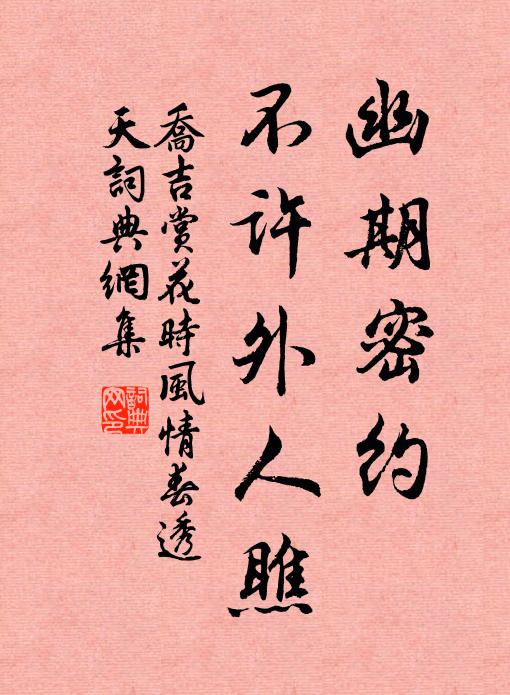 幽期密约
不许外人瞧
喬吉賞花時風情春透
天詞典網集
詞典
网印